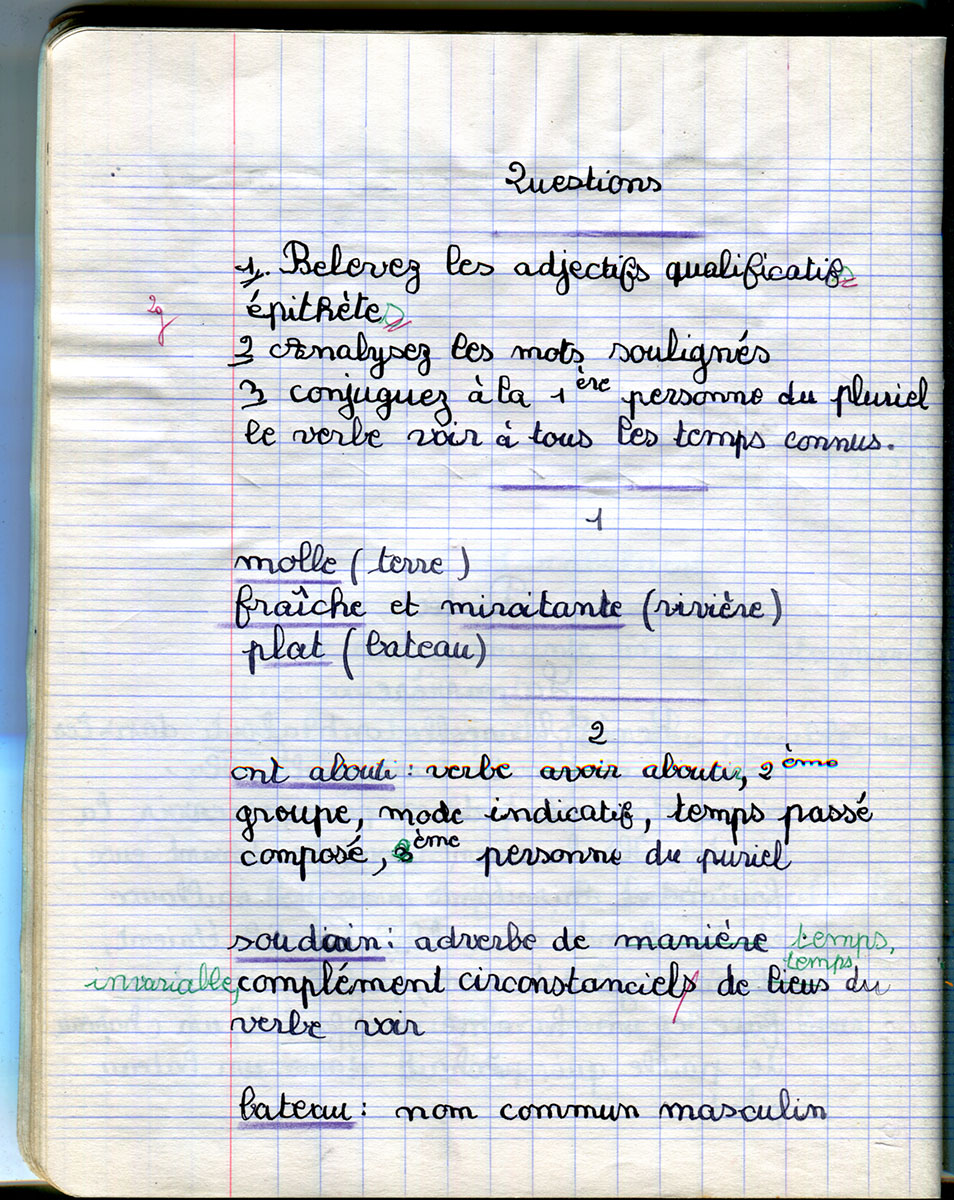 Questions
1. Relevez les adjectifs qualificatifs
2g
épithètes
2 Analysez les mots soulignés
3 conjuguez à la 1ère personne du pluriel
le verbe voir à tous les temps connus.
1
molle (terre)
fraîche et miroitante (rivière)
plat (bateau)
2
ont abouti : verbe avoir aboutir, 2ème
groupe, mode indicatif, temps passé
composé, 3ème personne du puriel
soudain : adverbe de manière temps,
temps
invariable, complément circonstanciels de lieus du
verbe voir
bateau : nom commun masculin